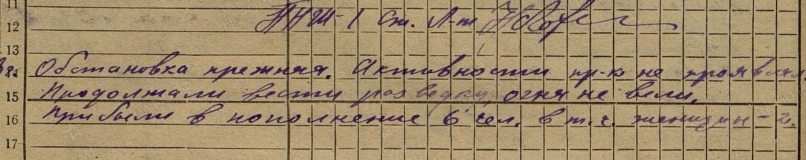 11
12 ПНШ-1 Ст. Л-т
13
Обстановка прежняя. Активности пр-к не проявлял.
15 Продолжали вести разведку, огня не вели.
16 Прибыли в пополнение 6 чел. в т.ч. женщин - 2.
17